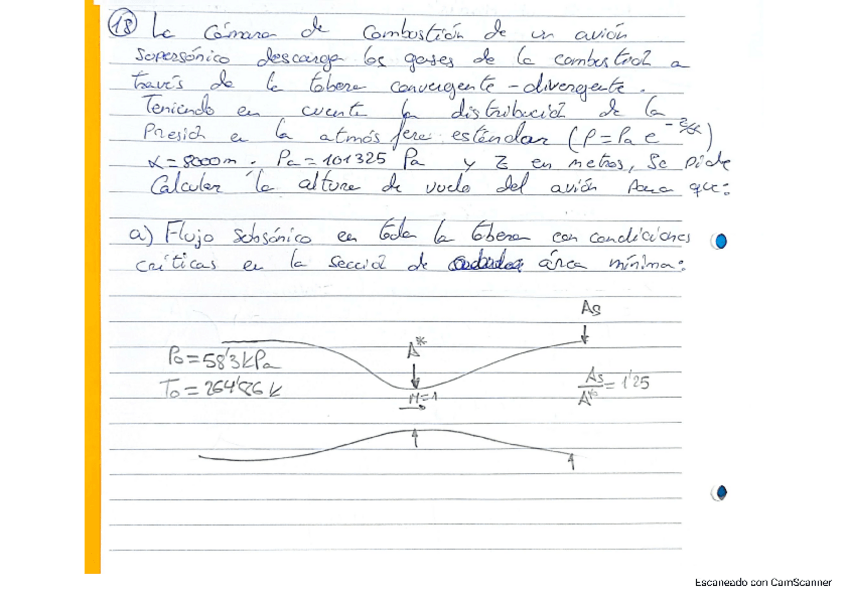 18 La Cámara de Combustión de un avión
supersónico descarga los gases de la combustión a
través de la tobera convergente - divergente.
Teniendo en cuenta la distribución de la
Presión en la atmósfera estándar (P = Pa e^-z/α)
α = 8000m. Pa = 101325 Pa y Z en metros, Se pide
Calcular la altura de vuelo del avión para que:
a) Flujo Subsónico en toda la tobera con condiciones
críticas en la sección de área mínima:
As
A*
P0 = 58'3 kPa
T0 = 264'86 K
M=1
As/A* = 1'25
Escaneado con CamScanner